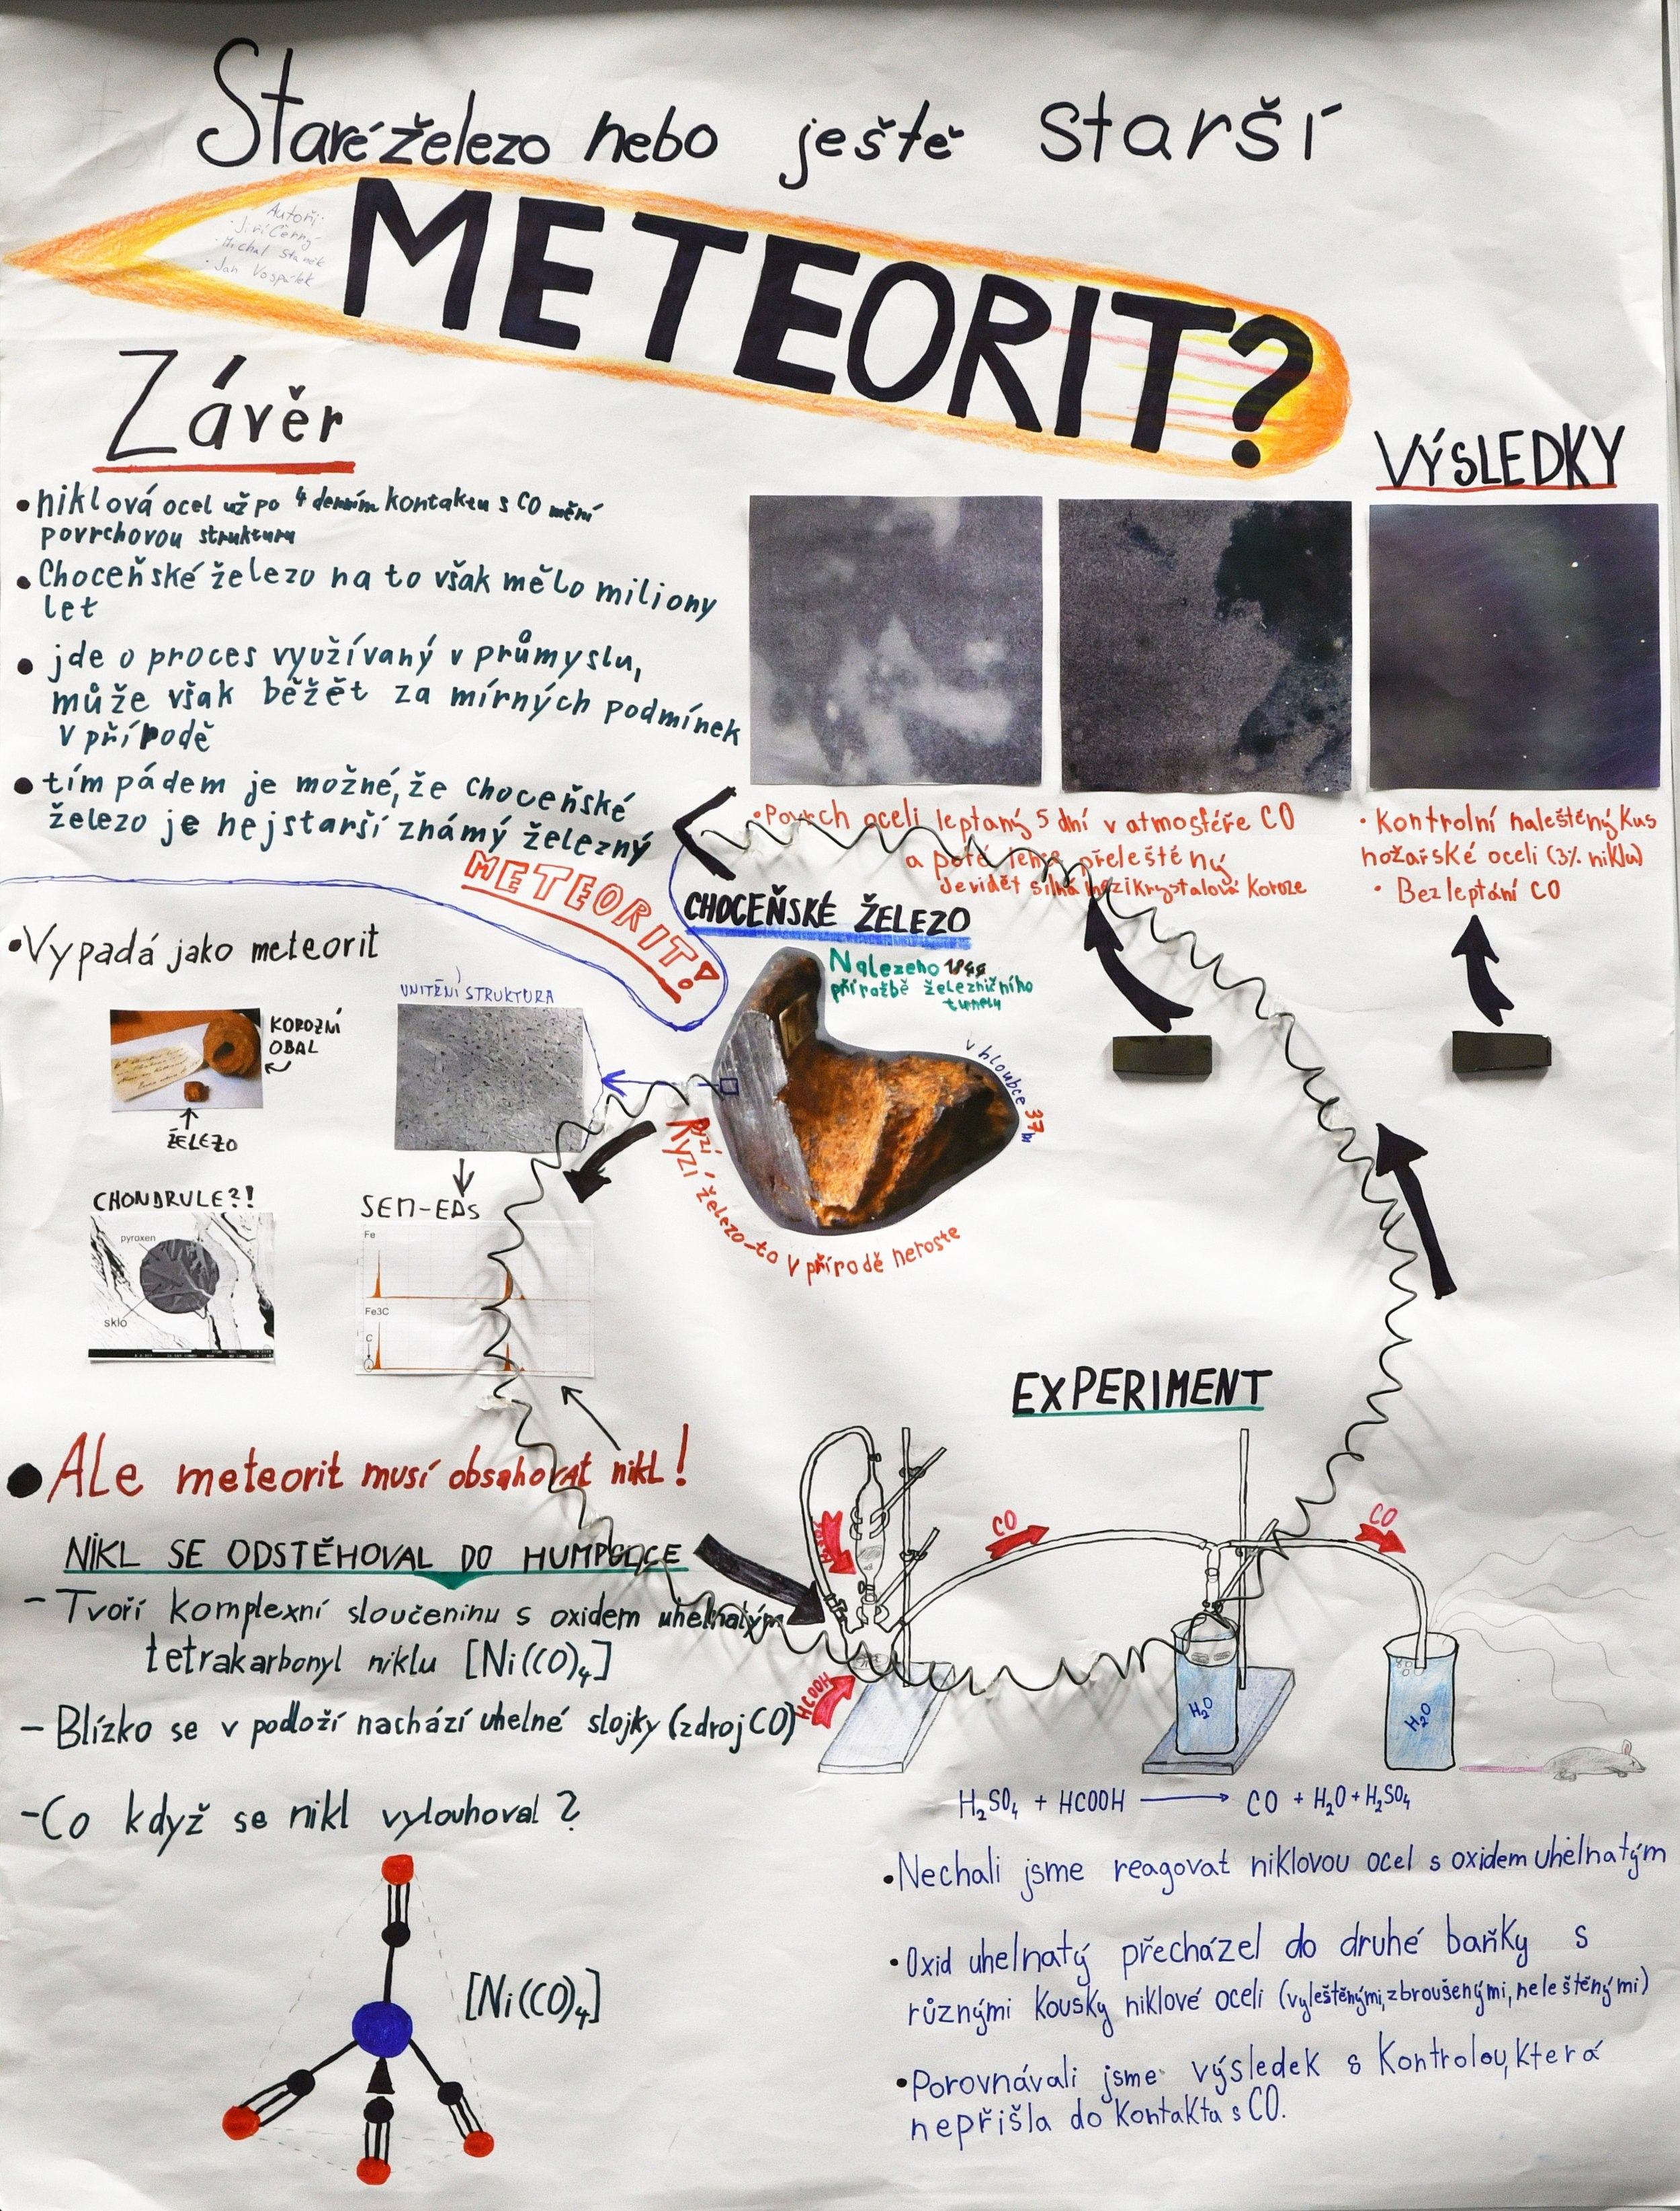 Staré železo nebo ještě starší
METEORIT?
Autoři:
• Jiří Černý
• Michal Staněk
• Jan Vospálek
Závěr
• niklová ocel už po 4 denním kontaktu s CO mění
povrchovou strukturu
• Choceňské železo na to však mělo miliony
let
• jde o proces využívaný v průmyslu,
může však běžět za mírných podmínek
v přírodě
• tím pádem je možné, že Choceňské
železo je nejstarší známý železný
METEORIT!
VÝSLEDKY
• Povrch oceli leptaný 5 dní v atmosféře CO
a poté přeleštěný
Je vidět silná mezikrystalová koroze
• Kontrolní naleštěný kus
nožařské oceli (3% niklu)
• Bez leptání CO
CHOCEŇSKÉ ŽELEZO
Nalezeno
při ražbě železničního
tunelu
v hloubce 37m
Ryzí
Ryzí železo - to v přírodě neroste
• Vypadá jako meteorit
KOROZNÍ
OBAL
ŽELEZO
VNITŘNÍ STRUKTURA
CHONDRULE?!
pyroxen
sklo
SEM-EDS
Fe
Fe3C
C
• Ale meteorit musí obsahovat nikl!
NIKL SE ODSTĚHOVAL DO HUMPOLCE
- Tvoří komplexní sloučeninu s oxidem uhelnatým
tetrakarbonyl niklu [Ni(CO)4]
- Blízko se v podloží nachází uhelné slojky (zdroj CO)
- Co když se nikl vylouhoval?
[Ni(CO)4]
EXPERIMENT
CO
CO
HCOOH
H2O
H2O
H2SO4 + HCOOH ⟶ CO + H2O + H2SO4
• Nechali jsme reagovat niklovou ocel s oxidem uhelnatým
• Oxid uhelnatý přecházel do druhé baňky s
různými kousky niklové oceli (vyleštěnými, zbroušenými, neleštěnými)
• Porovnávali jsme výsledek s kontrolou, která
nepřišla do kontakta s CO.